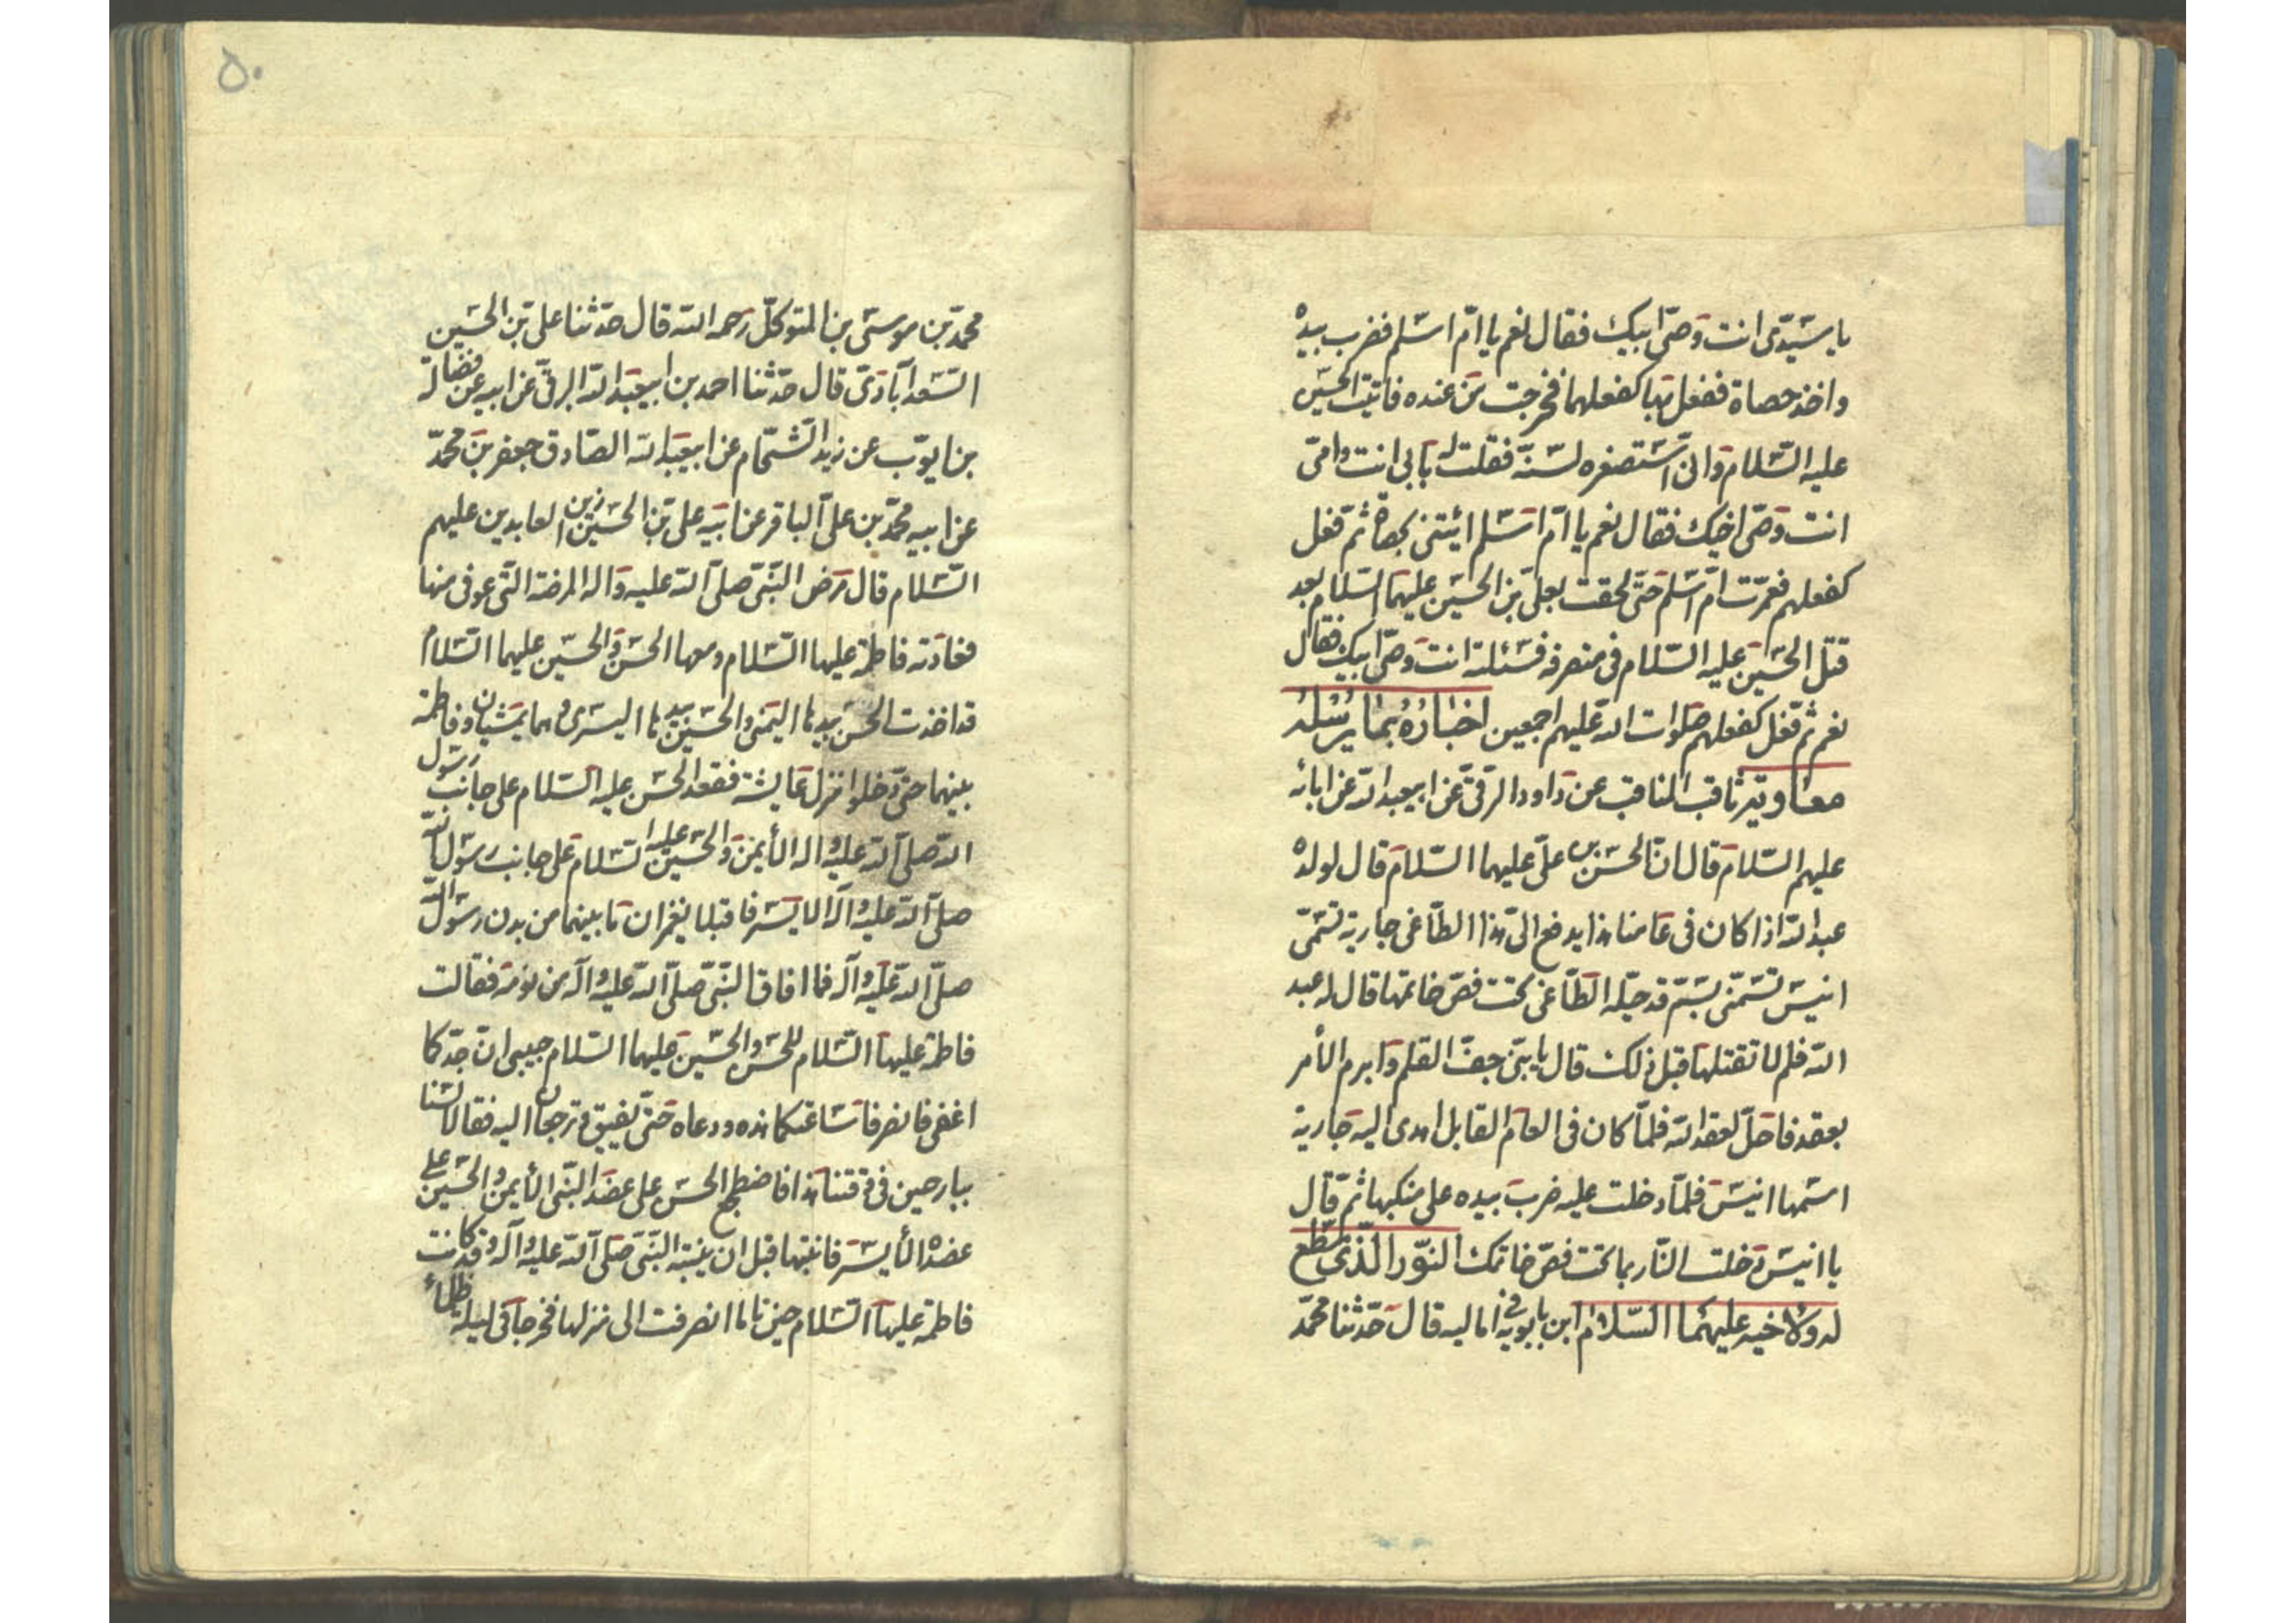 يا سيّدى انت وصىّ ابيك فقال نعم يا امّ اسلم فضرب بيده
واخذ حصاة ففعل بها كفعلهما فخرجت من عنده فاتيت الحسين
عليه السّلام وانى استصغره لسنّه فقلت له بابى انت وامّى
انت وصىّ اخيك فقال نعم يا امّ اسلم ائيتنى بحصاة ثم فعل
كفعلهم فعمّرت امّ اسلم حتى لحقت بعلىّ بن الحسين عليهما السّلام بعد
قتل الحسين عليه السّلام فى منصرفه فسئلته انت وصىّ ابيك فقال
نعم ثم فعل كفعلهم صلوات الله عليهم اجمعين اخباره بما يرسله
معاوية ثاقب المناقب عن داود الرقىّ عن ابيعبد الله عن ابائه
عليهم السّلام قال انّ الحسن بن علىّ عليهما السّلام قال لولده
عبد الله اذا كان فى عامنا هذا يدفع الىّ هذا الطّاغى جارية تسمّى
انيس تسمّنى بسمّ قد جعله الطّاغى تحت فصّ خاتمها قال له عبد
الله فلم لا تقتلها قبل ذلك قال يا بنىّ جفّ القلم وابرم الأمر
بعقد فا حلّ لعقد الله فلمّا كان فى العام القابل اهدى اليه جارية
اسمها انيس فلمّا دخلت عليه ضرب بيده على منكبها ثمّ قال
يا انيس دخلت النّار بما تحت فصّ خاتمك النّور الّذى سطع
له ولاخيه عليهما السّلام ابن بابويه فى اماليه قال حدّثنا محمّد
۵۰
محمّد بن موسى بن المتوكّل رحمه الله قال حدّثنا على بن الحسين
السّعد آبادىّ قال حدّثنا احمد بن ابيعبد الله البرقىّ عن ابيه عن فضالة
بن ايوّب عن زيد الشّحّام عن ابيعبد الله الصّادق جعفر بن محمّد
عن ابيه محمّد بن على الباقر عن ابيه على بن الحسين زين العابدين عليهم
السّلام قال مرض النّبىّ صلى الله عليه واله المرضة الّتى عوفى منها
فعادته فاطمة عليها السّلام ومعها الحسن والحسين عليهما السّلام
قد اخذت الحسن بيدها اليمنى والحسين بيدها اليسرى وهما يمشيان وفاطمة
بينهما حتّى دخلوا منزل عايشة فقعد الحسن عليه السّلام على جانب رسول
الله صلى الله عليه واله الأيمن والحسين عليه السّلام على جانب رسول الله
صلى الله عليه واله الايسر فاقبلا يغمزان ما بينهما من بدن رسول الله
صلىّ الله عليه واله فما افاق النّبىّ صلىّ الله عليه واله من نومه فقالت
فاطمة عليها السّلام للحسن والحسين عليهما السّلام حبيبى انّ جدّكما
اغفى فانصرفا ساعتكما هذه ودعاه حتّى يفيق وترجعان اليه فقالا لسنا
ببارحين فى وقتنا هذا فاضطجع الحسن على عضد النّبى الأيمن والحسين على
عضده الأيسر فانتبها قبل ان ينتبه النّبىّ صلى الله عليه وآله وقد كانت
فاطمة عليها السّلام حين ناما انصرفت الى منزلها فخرجا فى ليلة ظلماء